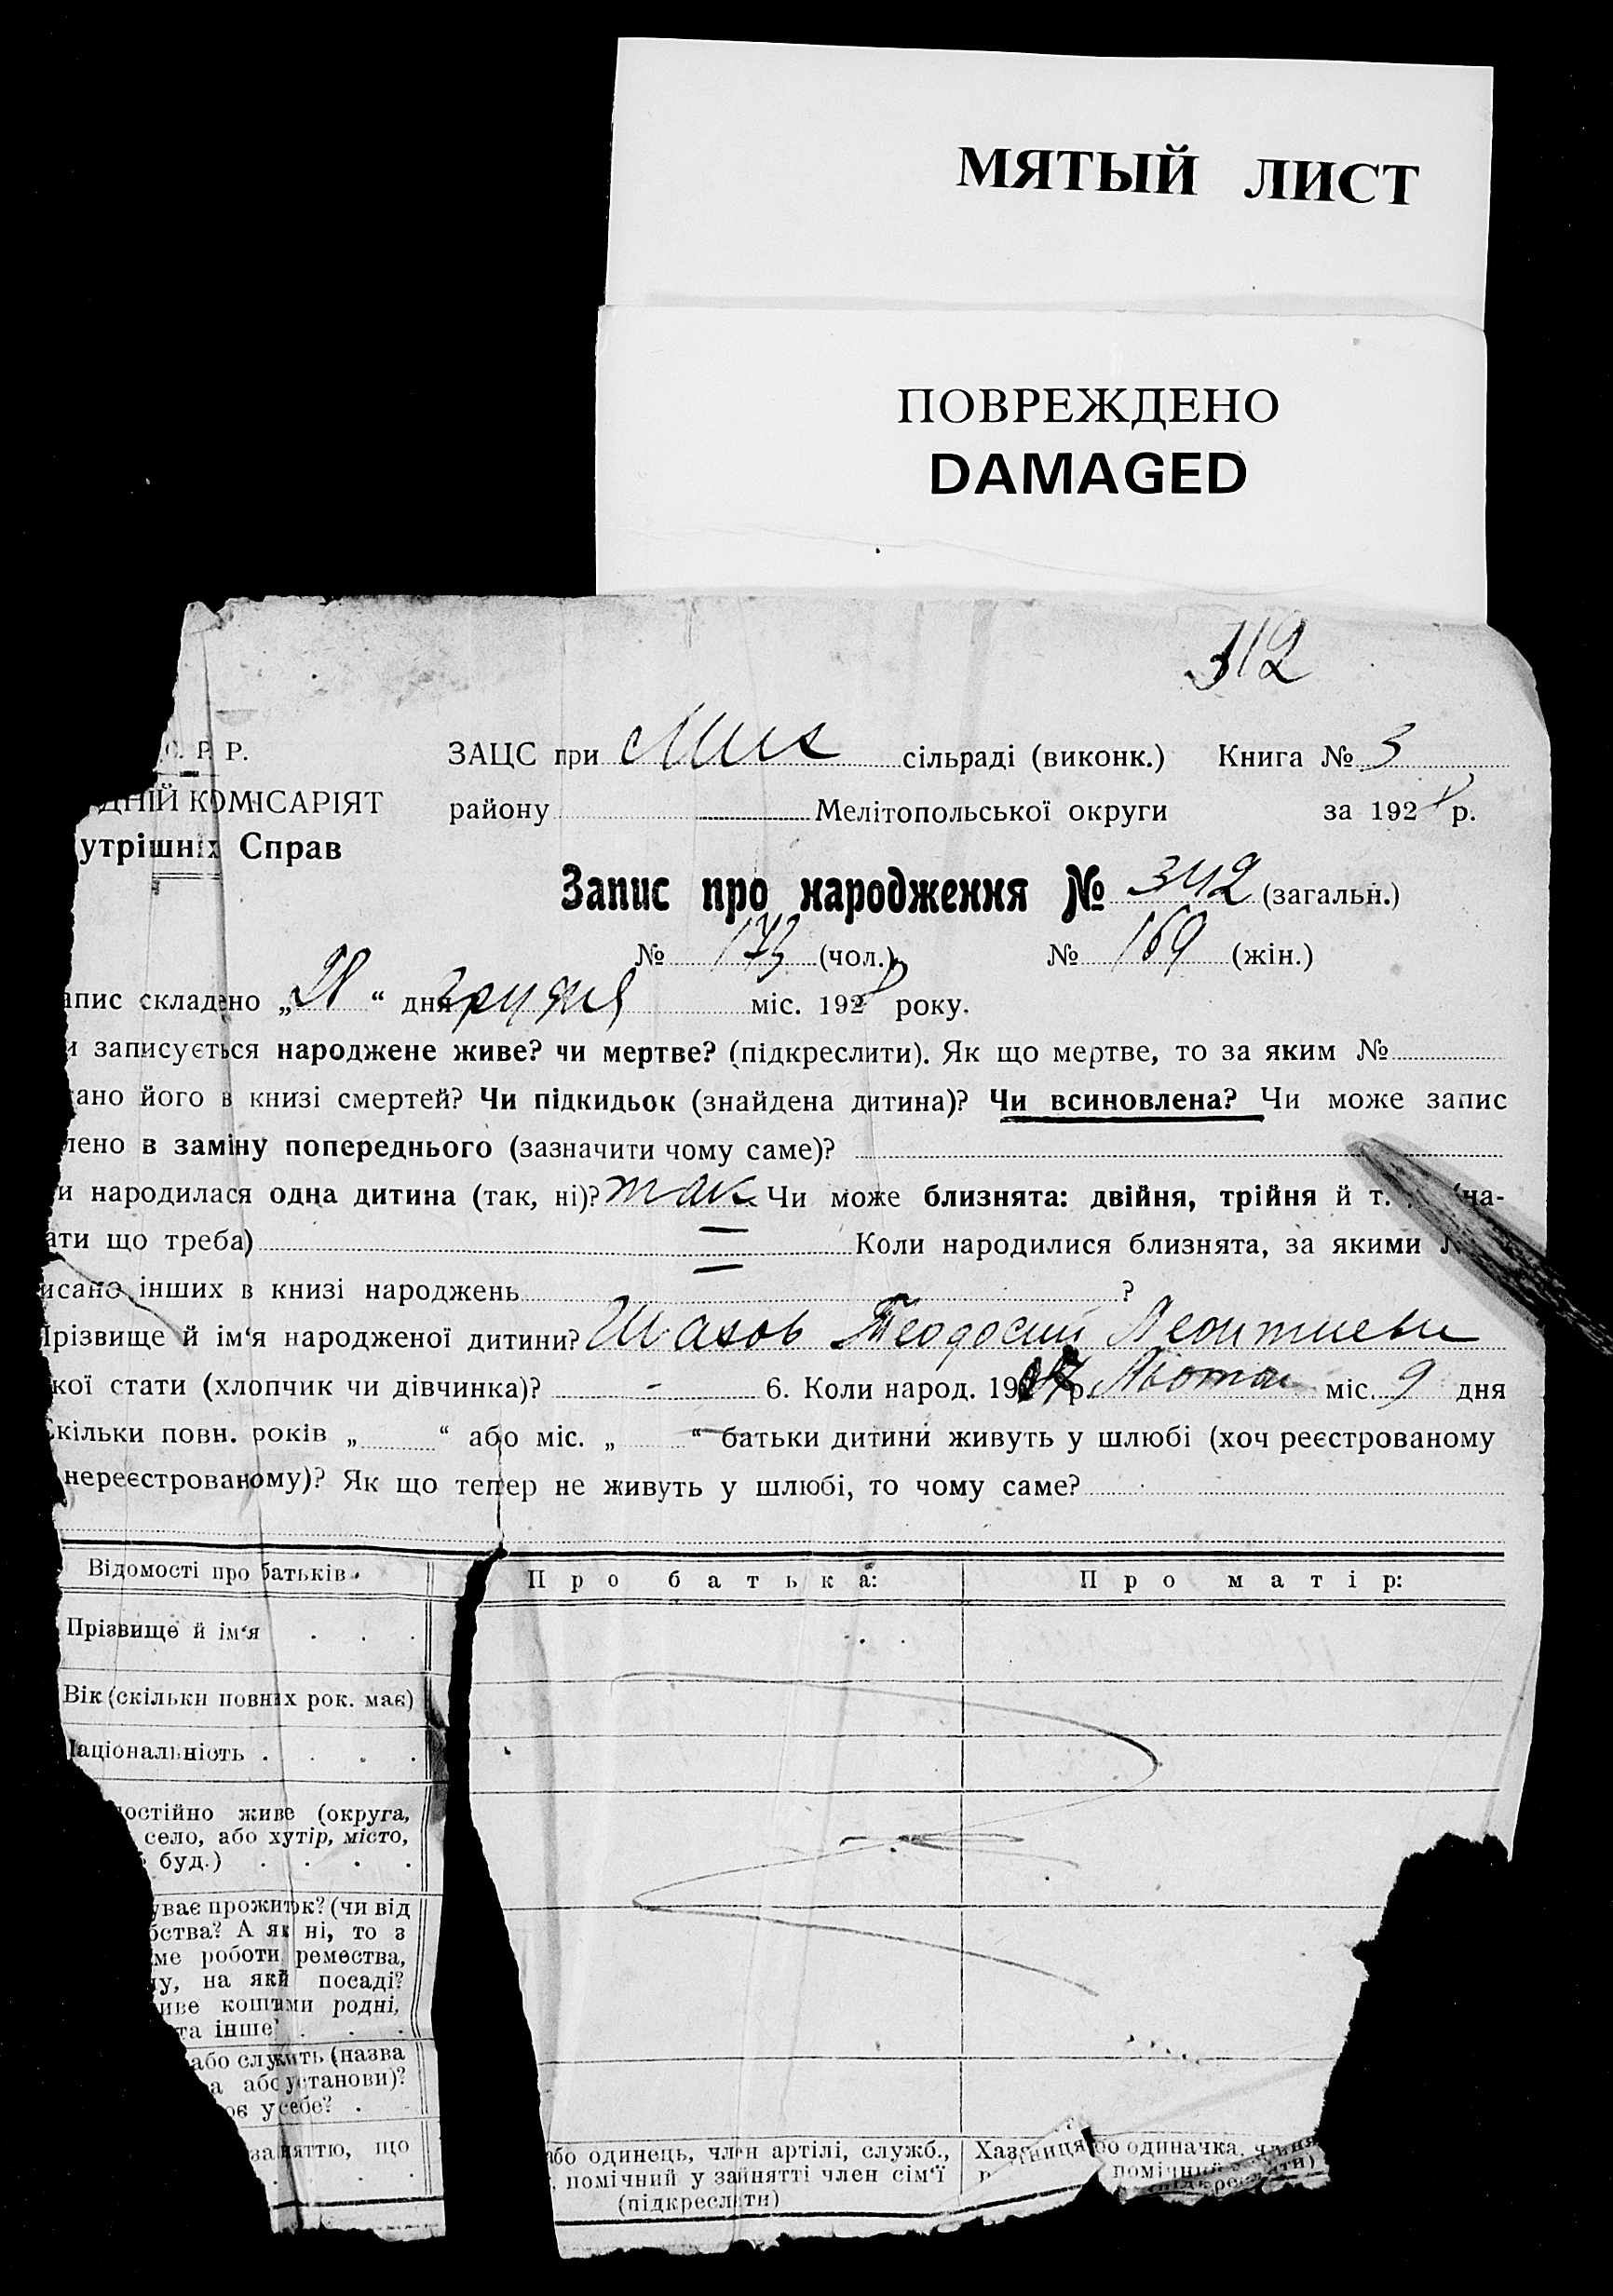 МЯТЫЙ ЛИСТ
ПОВРЕЖДЕНО
DAMAGED
312
С. Р. Р. ЗАЦС при сільраді (виконк.) Книга № 3
ДНІЙ КОМІСАРІЯТ району Мелітопольської округи за 192 р.
утрішніх Справ
Запис про народження № 342 (загальн.)
№ 173 (чол.) № 169 (жін.)
апис складено „28“ дня грудня міс. 1928 року.
и записується народжене живе? чи мертве? (підкреслити). Як що мертве, то за яким №
ано його в книзі смертей? Чи підкидьок (знайдена дитина)? Чи всиновлена? Чи може запис
лено в заміну попереднього (зазначити чому саме)?
и народилася одна дитина (так, ні)? так Чи може близнята: двійня, трійня й т. (на-
ати що треба) Коли народилися близнята, за якими №
исано інших в книзі народжень ?
Прізвище й ім‘я народженої дитини? Шахов Теодосий Леонтиеви
кої стати (хлопчик чи дівчинка)? - 6. Коли народ. 19 р. міс. 9 дня
кільки повн. років „ “ або міс. „ “ батьки дитини живуть у шлюбі (хоч реєстрованому
нереєстрованому)? Як що тепер не живуть у шлюбі, то чому саме?
Відомості про батьків Про батька: Про матір:
Прізвище й ім‘я . . .
Вік (скільки повних рок. має)
Національність . . . .
постійно живе (округа,
село, або хутір, місто,
буд.) . . . .
ує прожиток? (чи від
ства? А як ні, то з
ме роботи, ремества,
у, на якій посаді?
иве коштами родні,
та інше) . . .
або служить (назва
а або установи)?
ює у себе? .
заняттю, що
або одинець, член артілі, служб., Хазяїниця бо одиначка,
помічний у занятті член сім‘ї помічний
(підкреслити)